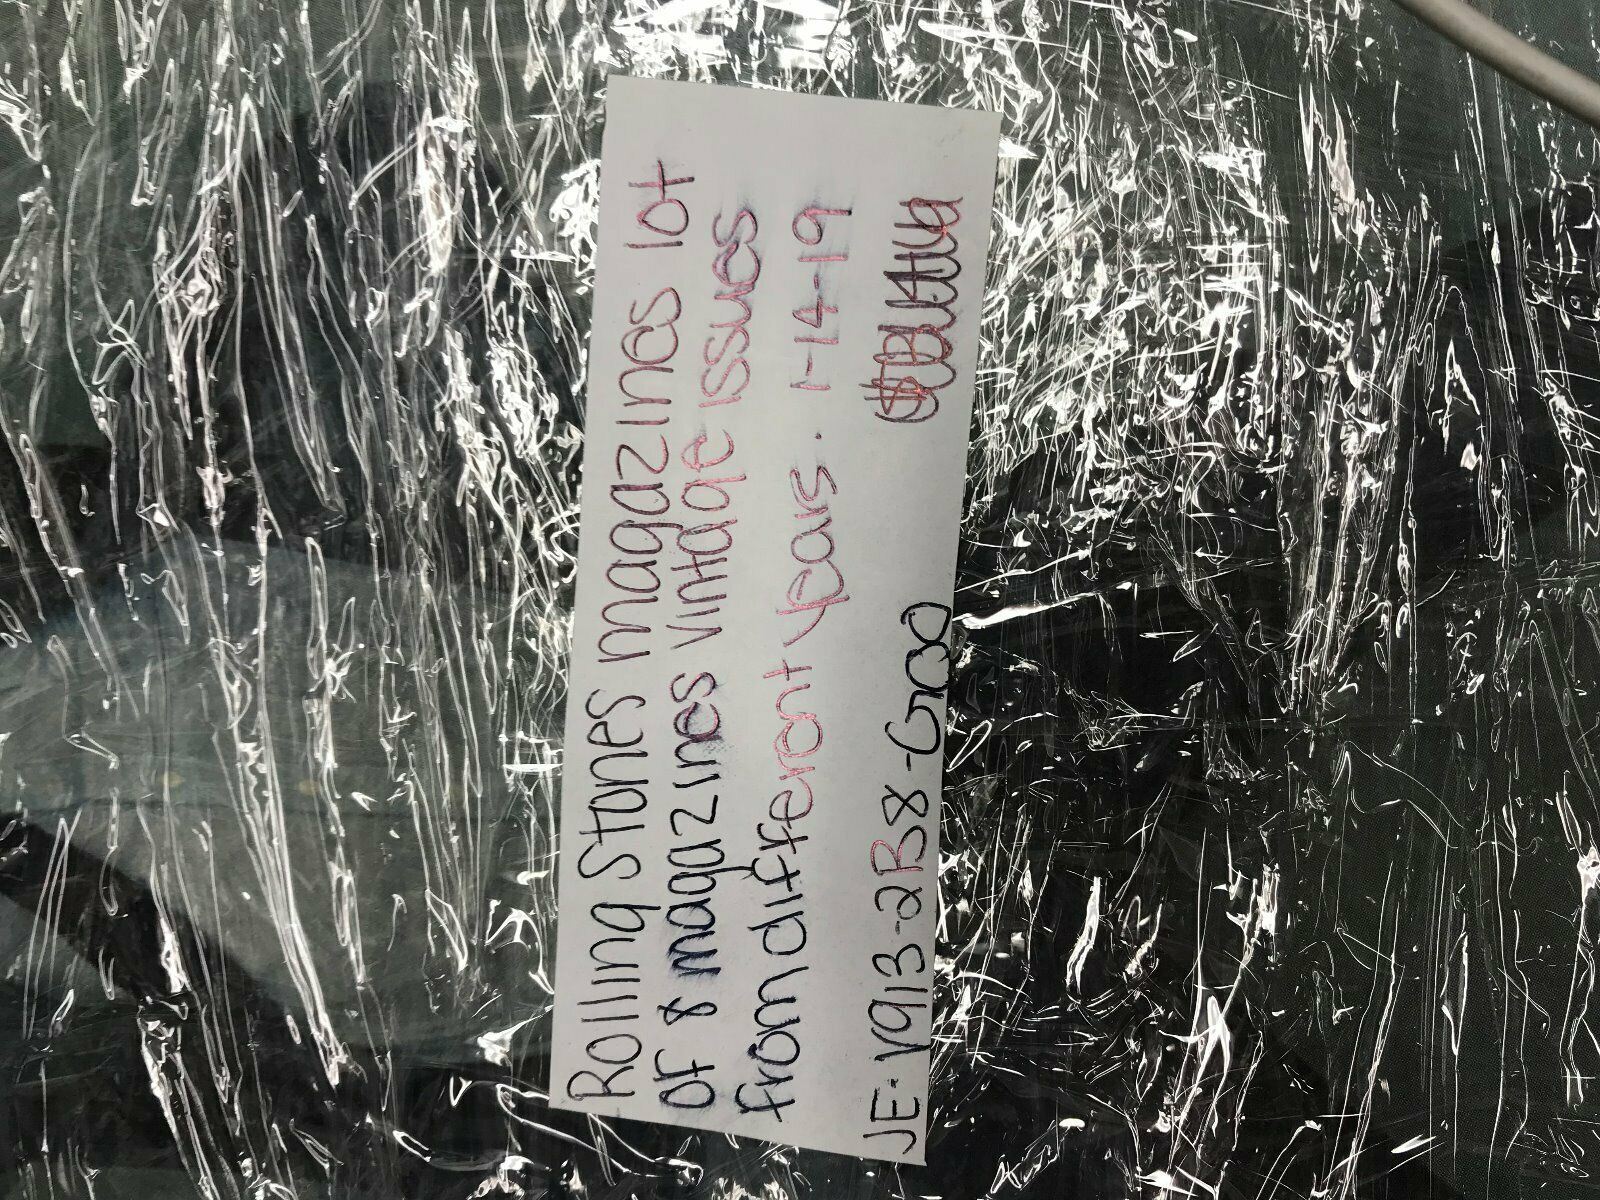 Rolling Stones magazines lot
of 8 magazines vintage issues
from different years. 1-14-19
JE: V913-2B8-Goo